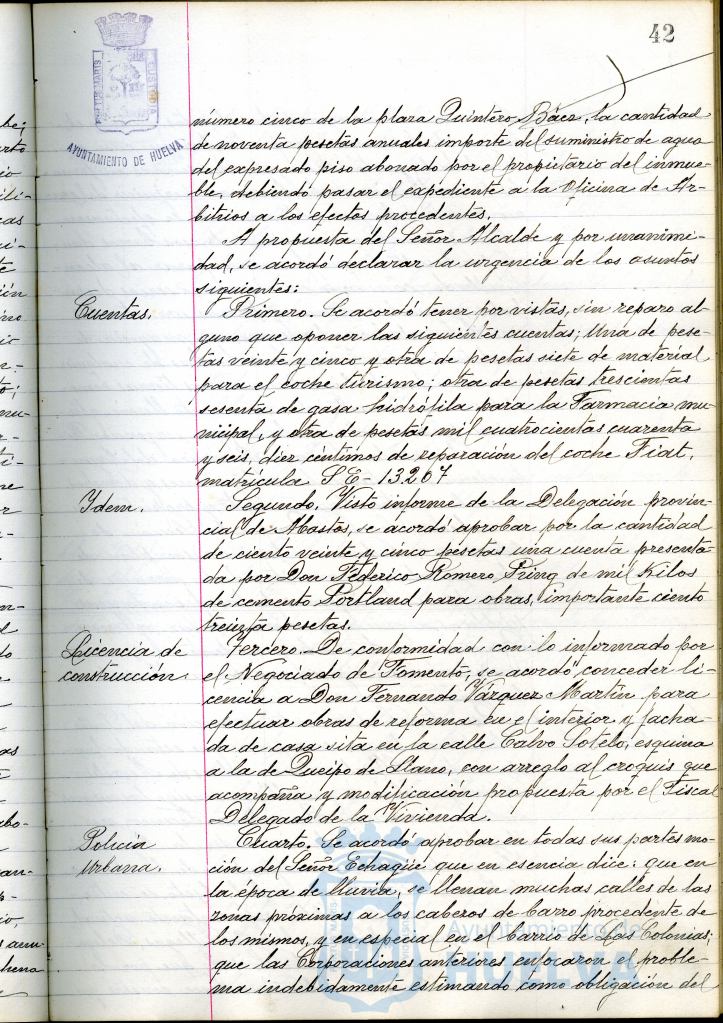 42
AYUNTAMIENTO DE HUELVA
número cinco de la plaza Quintero Báez, la cantidad
de noventa pesetas anuales importe del suministro de agua
del expresado piso abonado por el propietario del inmue-
ble, debiendo pasar el expediente a la Oficina de Ar-
bitrios a los efectos procedentes.
A propuesta del Señor Alcalde y por unanimi-
dad, se acordó declarar la urgencia de los asuntos
siguientes:
Cuentas.
Primero. Se acordó tener por vistas, sin reparo al-
guno que oponer las siguientes cuentas; Una de pese-
tas veinte y cinco y otra de pesetas siete de material
para el coche turismo; otra de pesetas trescientas
sesenta de gasa hidrófila para la Farmacia mu-
nicipal, y otra de pesetas mil cuatrocientas cuarenta
y seis, diez céntimos de reparación del coche Fiat,
matrícula SE-13.207
Ydem.
Segundo. Visto informe de la Delegación provin-
cial de Abastos, se acordó aprobar por la cantidad
de ciento veinte y cinco pesetas una cuenta presenta-
da por Don Federico Romero Pring de mil Kilos
de cemento Portland para obras, importante ciento
treinta pesetas.
Licencia de
construcción
Tercero. De conformidad con lo informado por
el Negociado de Fomento, se acordó conceder li-
cencia a Don Fernando Vázquez Martín para
efectuar obras de reforma en el interior y facha-
da de casa sita en la calle Calvo Sotelo, esquina
a la de Queipo de Llano, con arreglo al croquis que
acompaña y modificación propuesta por el Fiscal
Delegado de la Vivienda.
Policía
Urbana.
Cuarto. Se acordó aprobar en todas sus partes mo-
ción del Señor Echagüe que en esencia dice: que en
la época de lluvia, se llenan muchas calles de las
zonas próximas a los cabezos de barro procedente de
los mismos, y en especial en el barrio de Las Colonias;
que las Corporaciones anteriores enfocaron el proble-
ma indebidamente estimando como obligación del
Ayuntamiento de
HUELVA